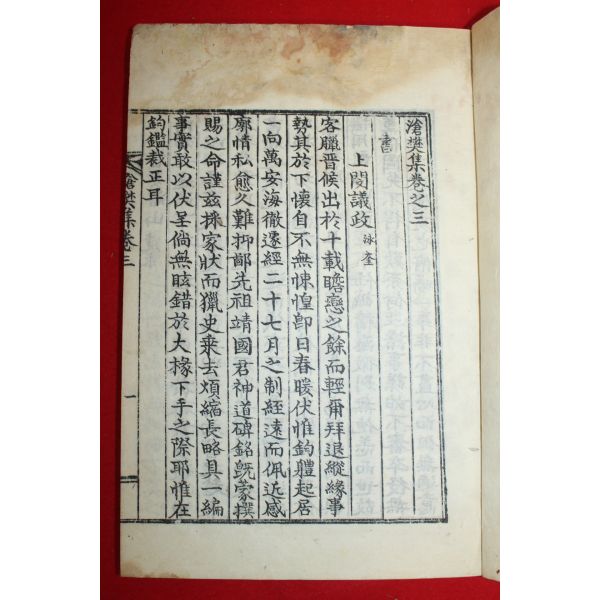 滄樊集卷之三
書
上閔議政 泳奎
客臘晋候出於十載瞻戀之餘而輕爾拜退縱緣事
勢其於下懷自不無悚惶卽日春暖伏惟鈞軆起居
一向萬安海徹遽經二十七月之制經遠而佩近感
廓情私愈久難抑鄙先祖靖國君神道碑銘旣蒙撰
賜之命謹玆採家狀而獵史乘去煩縮長略具一編
事實敢以伏呈倘無眩錯於大椽下手之際耶惟在
鈞鑑裁正耳
滄樊集卷三
一